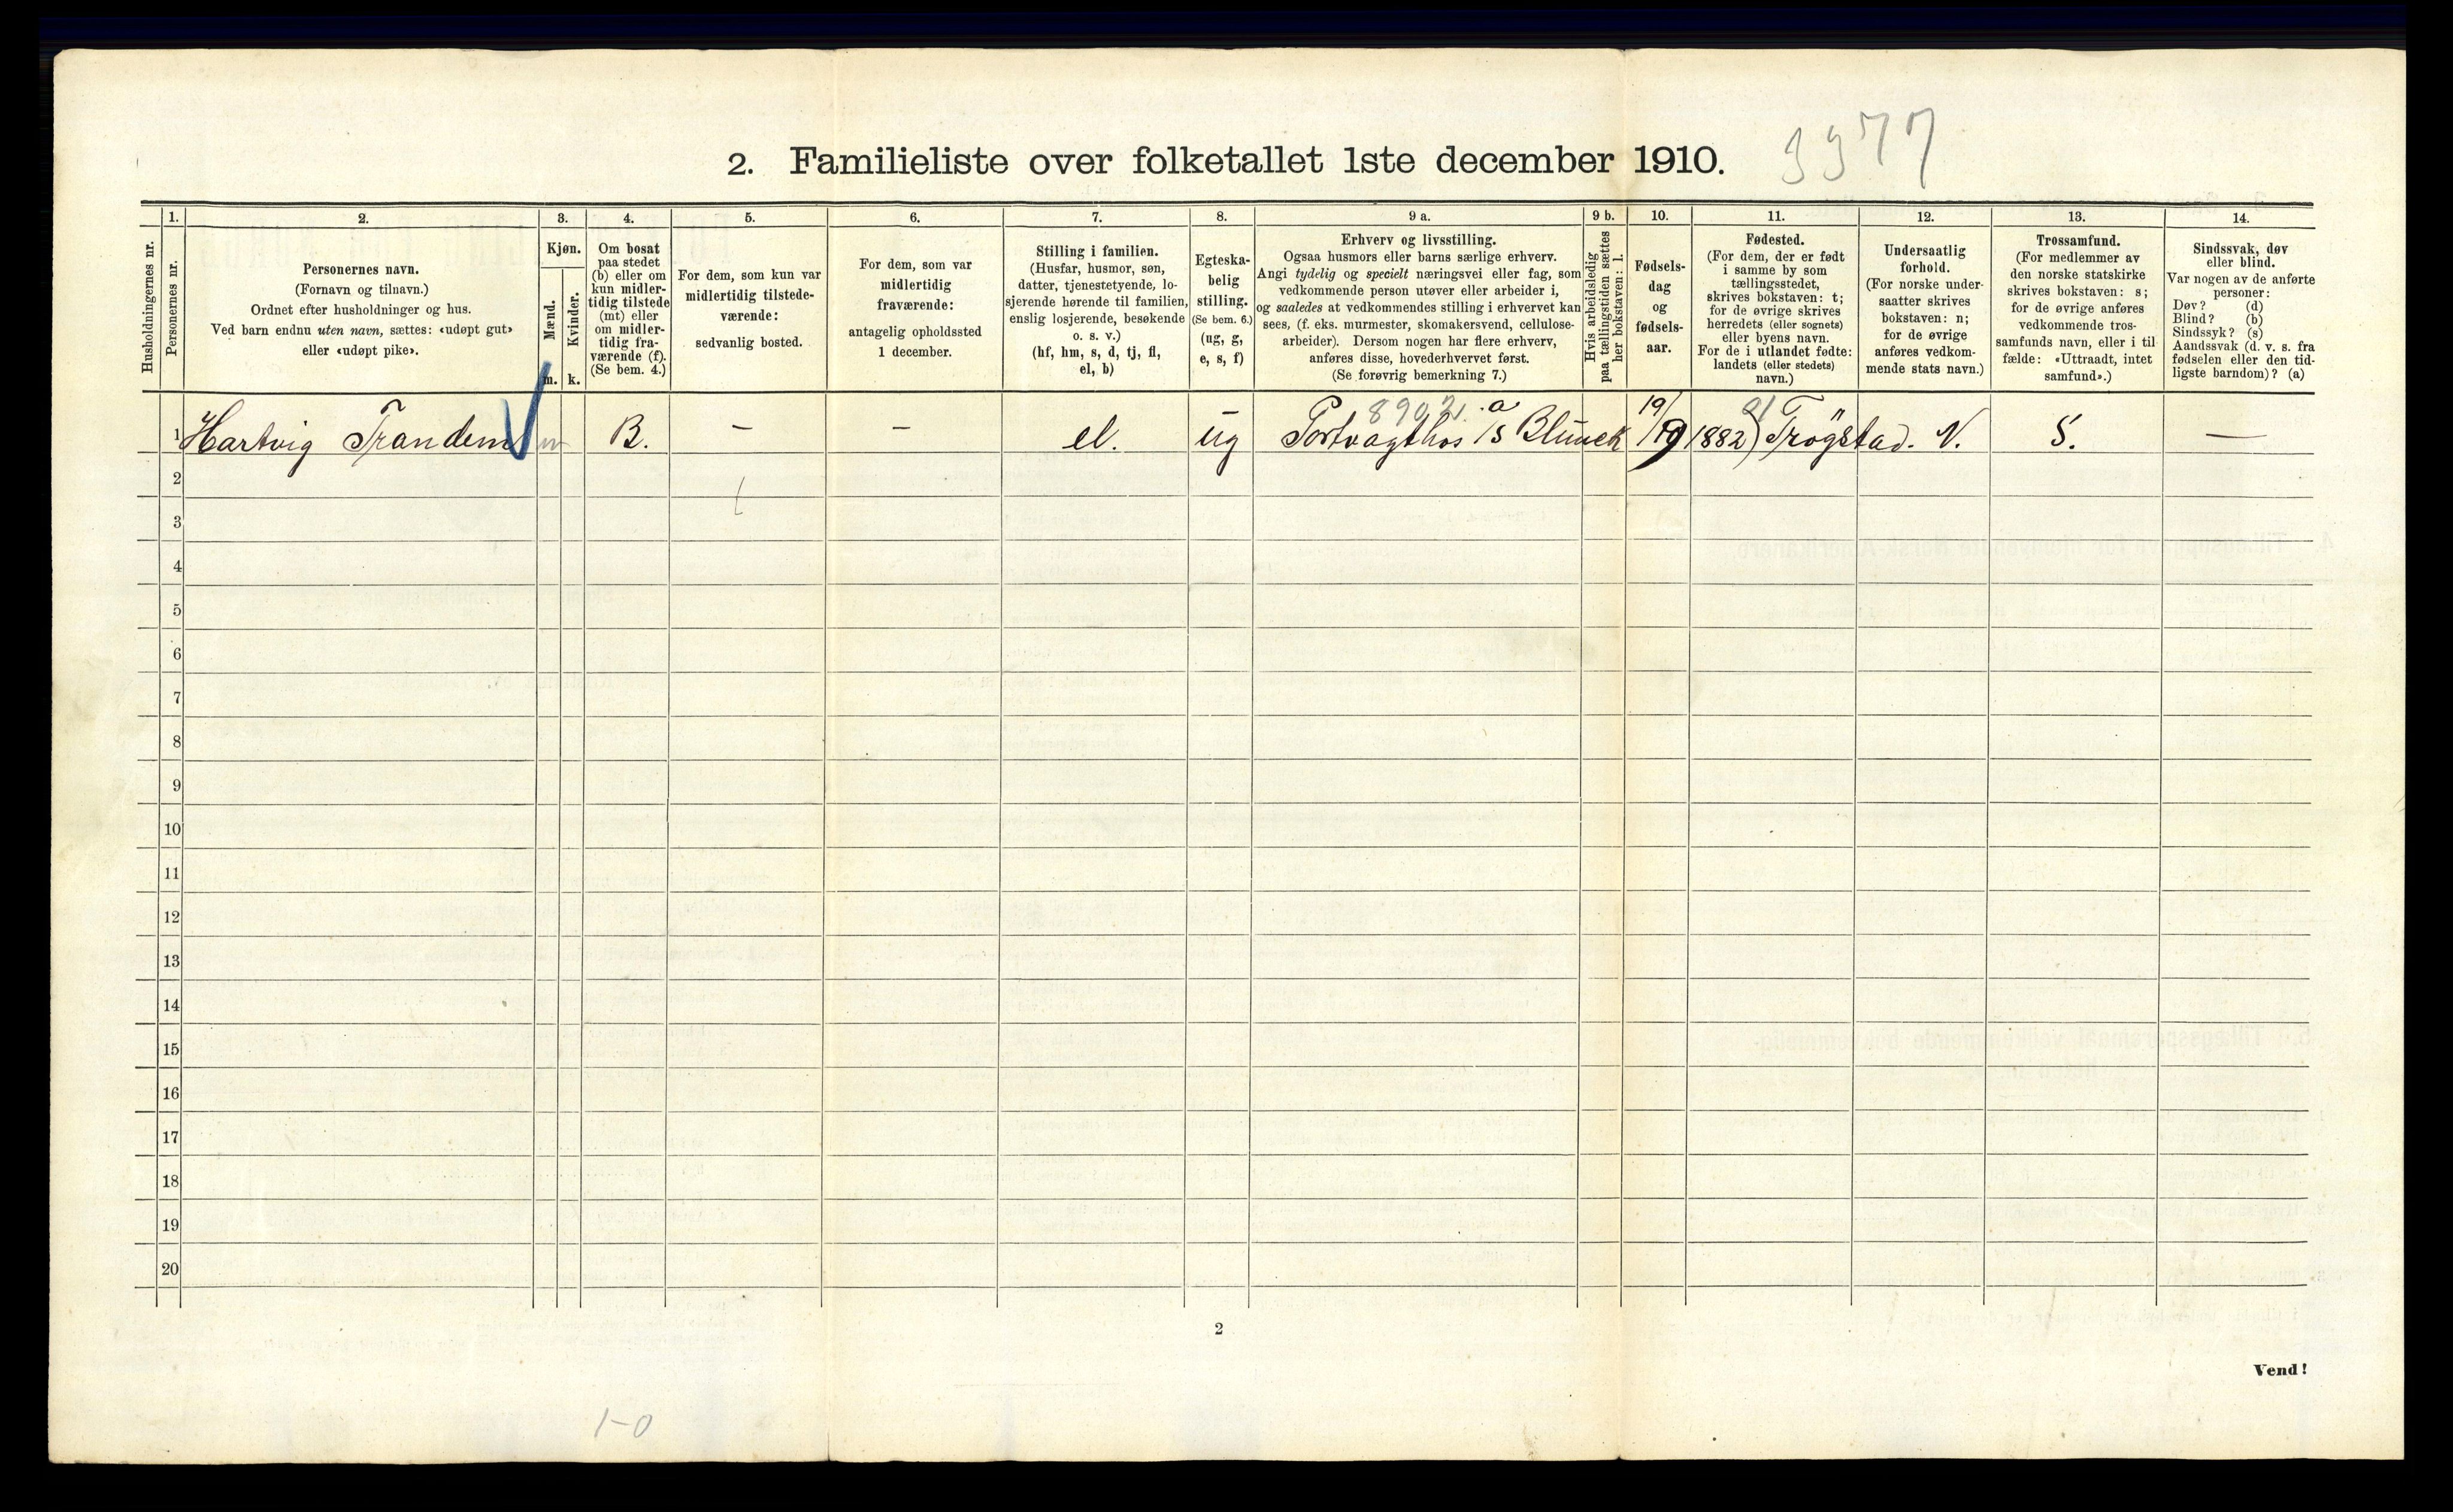 2. Familieliste over folketallet 1ste december 1910. 3977
Husholdningernes nr.
1.
Personernes nr.
2.
Personernes navn.
(Fornavn og tilnavn.)
Ordnet efter husholdninger og hus.
Ved barn endnu uten navn, sættes: «udøpt gut»
eller «udøpt pike».
3.
Kjøn.
Mænd.
Kvinder.
m. k.
4.
Om bosat
paa stedet
(b) eller om
kun midler-
tidig tilstede
(mt) eller
om midler-
tidig fra-
værende (f).
(Se bem. 4.)
5.
For dem, som kun var
midlertidig tilstede-
værende:
sedvanlig bosted.
6.
For dem, som var
midlertidig
fraværende:
antagelig opholdssted
1 december.
7.
Stilling i familien.
(Husfar, husmor, søn,
datter, tjenestetyende, lo-
sjerende hørende til familien,
enslig losjerende, besøkende
o. s. v.)
(hf, hm, s, d, tj, fl,
el, b)
8.
Egteska-
belig
stilling.
(Se bem. 6.)
(ug, g,
e, s, f)
9 a.
Erhverv og livsstilling.
Ogsaa husmors eller barns særlige erhverv.
Angi tydelig og specielt næringsvei eller fag, som
vedkommende person utøver eller arbeider i,
og saaledes at vedkommendes stilling i erhvervet kan
sees, (f. eks. murmester, skomakersvend, cellulose-
arbeider). Dersom nogen har flere erhverv,
anføres disse, hovederhvervet først.
(Se forøvrig bemerkning 7.)
9 b.
Hvis arbeidsledig
paa tællingstiden sættes
her bokstaven: l.
10.
Fødsels-
dag
og
fødsels-
aar.
11.
Fødested.
(For dem, der er født
i samme by som
tællingsstedet,
skrives bokstaven: t;
for de øvrige skrives
herredets (eller sognets)
eller byens navn.
For de i utlandet fødte:
landets (eller stedets)
navn.)
12.
Undersaatlig
forhold.
(For norske under-
saatter skrives
bokstaven: n;
for de øvrige
anføres vedkom-
mende stats navn.)
13.
Trossamfund.
(For medlemmer av
den norske statskirke
skrives bokstaven: s;
for de øvrige anføres
vedkommende tros-
samfunds navn, eller i til-
fælde: «Uttraadt, intet
samfund».)
14.
Sindssvak, døv
eller blind.
Var nogen av de anførte
personer:
Døv? (d)
Blind? (b)
Sindssyk? (s)
Aandssvak (d. v. s. fra
fødselen eller den tid-
ligste barndom)? (a)
1 Hartvig Trandem m B. — — el. ug Portvagt hos A/S Blunck 19/9 1882 Trøgstad. N. S. —
2
3
4
5
6
7
8
9
10
11
12
13
14
15
16
17
18
19
20
2
Vend!
1-0